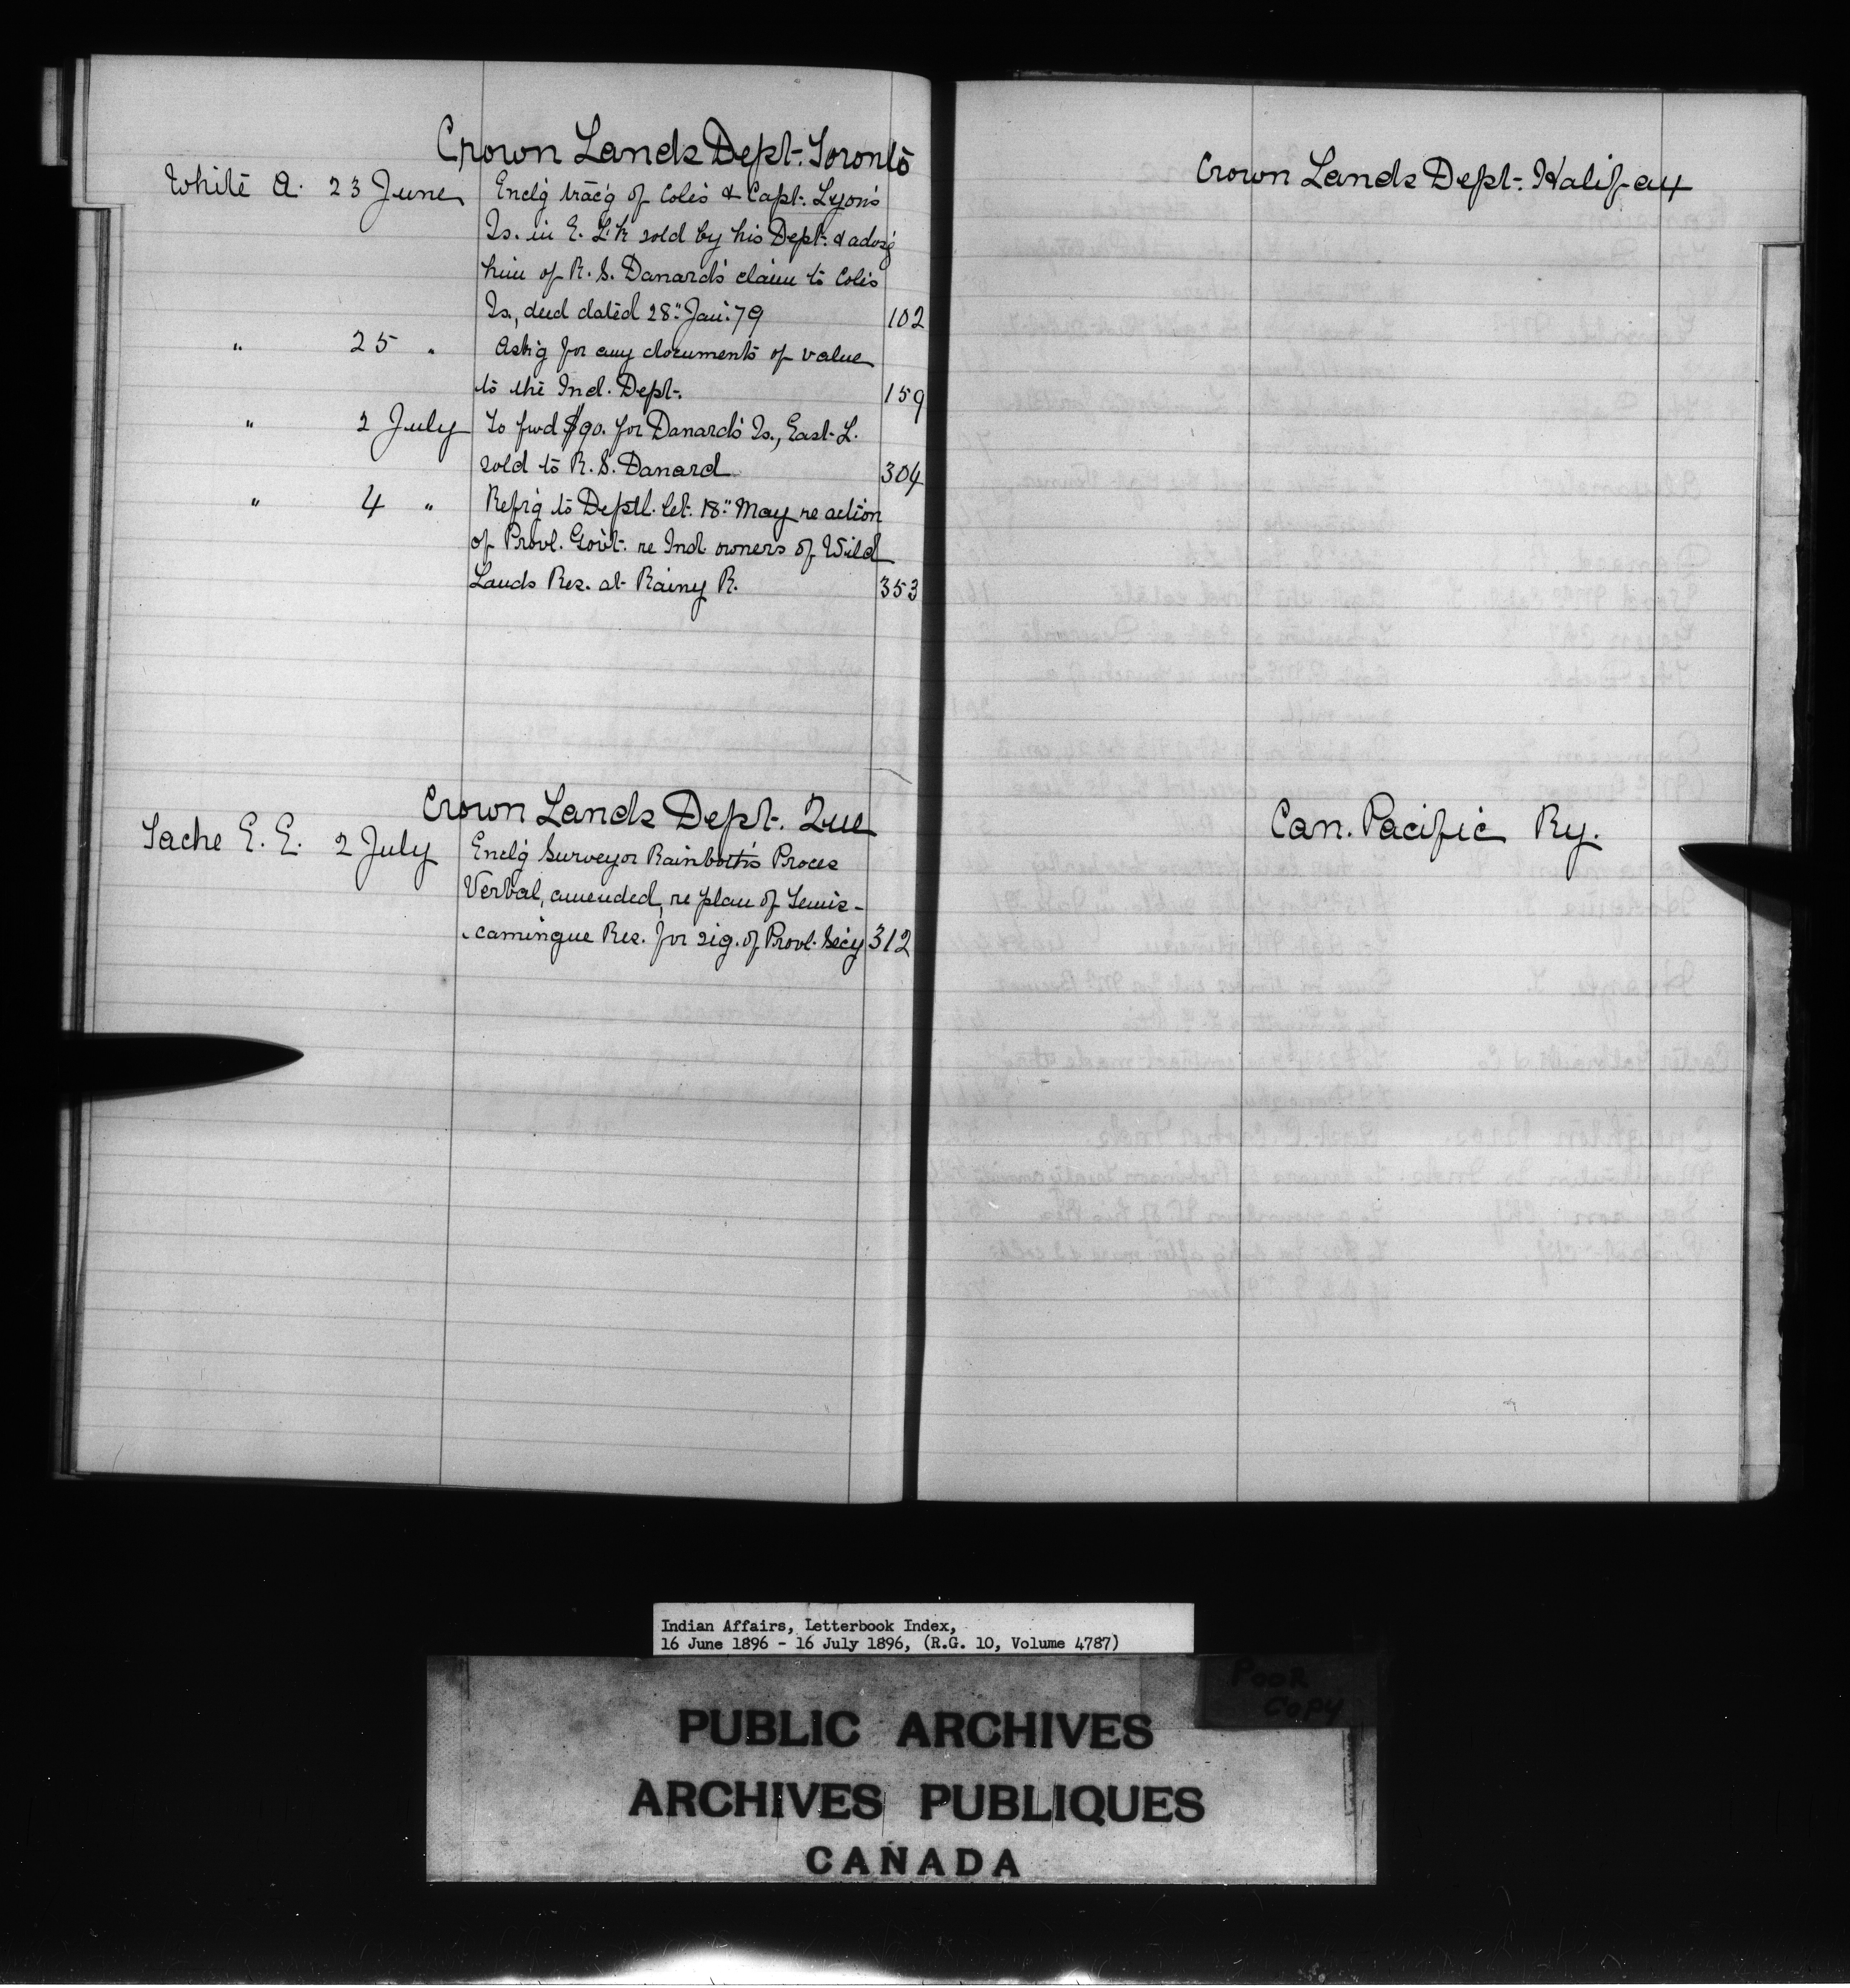 Crown Lands Dept. Toronto
White A. 23 June Enclg trac'g of Coles & Capt. Lyon's
Is. in E. L'k sold by his Dept. & advsg
him of R. S. Danard's claim to Coles
Is., deed dated 28" Jan. 79 102
" 25 " Ask'g for any documents of value
to the Ind. Dept. 159
" 2 July To fwd $90. for Danard's Is., East L.
sold to R. S. Danard 304
" 4 " Refr'g to Deptl. let. 18" May re action
of Provl. Gov't. re Ind. owners of Wild
Lands Res. at Rainy R. 353
Crown Lands Dept. Que
Tache E. E. 2 July Enclg Surveyor Rainboth's Proces
Verbal, amended, re plan of Temis-
camingue Res. for sig. of Provl. Sec'y 312
Crown Lands Dept. Halifax
Can. Pacific Ry.
Indian Affairs, Letterbook Index,
16 June 1896 - 16 July 1896, (R.G. 10, Volume 4787)
POOR
COPY
PUBLIC ARCHIVES
ARCHIVES PUBLIQUES
CANADA